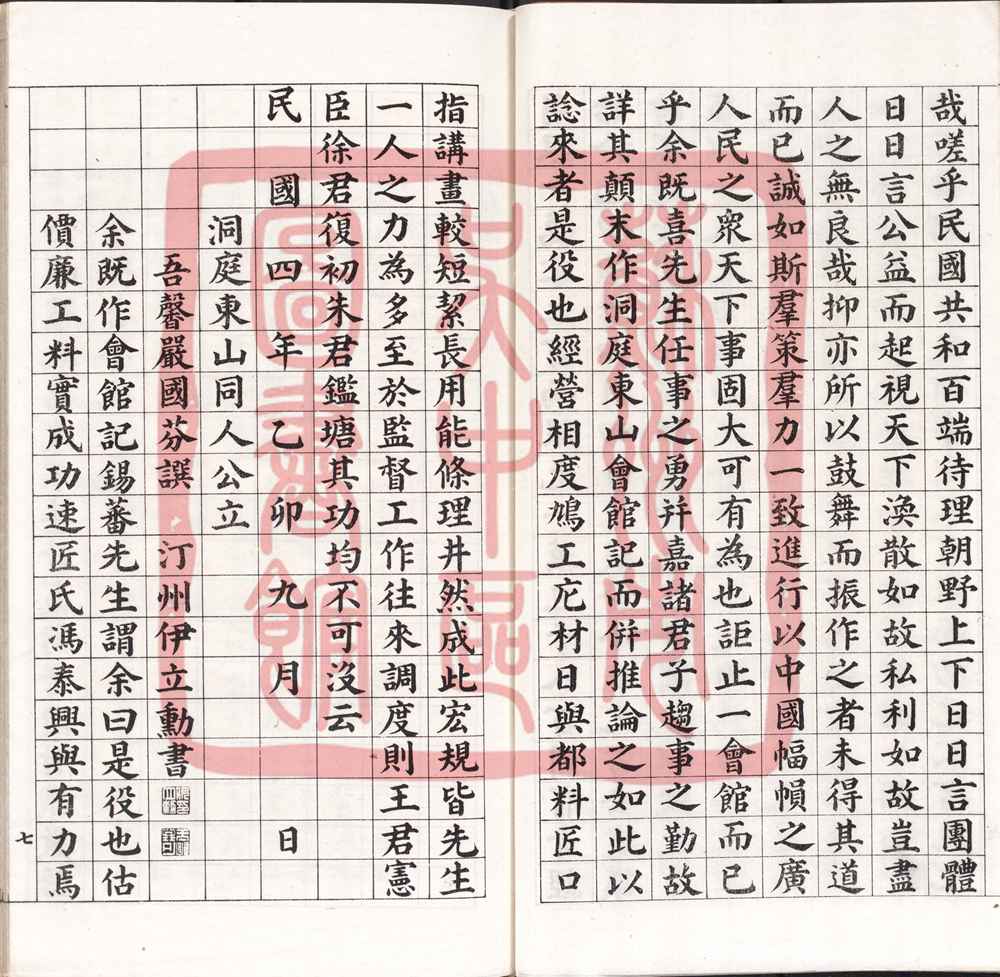 哉嗟乎民國共和百端待理朝野上下日日言團體
日日言公益而起視天下渙散如故私利如故豈盡
人之無良哉抑亦所以鼓舞而振作之者未得其道
而已誠如斯羣策羣力一致進行以中國幅幀之廣
人民之眾天下事固大可有為也詎止一會館而已
乎余既喜先生任事之勇并嘉諸君子趨事之勤故
詳其顛末作洞庭東山會館記而併推論之如此以
諗來者是役也經營相度鳩工庀材日與都料匠口
指講畫較短絜長用能條理井然成此宏規皆先生
一人之力為多至於監督工作往來調度則王君憲
臣徐君復初朱君鑑塘其功均不可沒云
民國四年乙卯九月日
洞庭東山同人公立
吾馨嚴國芬譔 汀州伊立勳書
余既作會館記錫蕃先生謂余曰是役也估
價廉工料實成功速匠氏馮泰興與有力焉
七
蘇州市
吳中區
圖書館